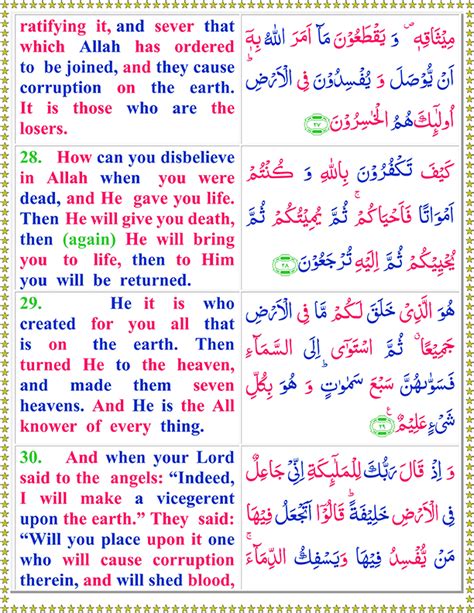 ratifying it, and sever that
which Allah has ordered
to be joined, and they cause
corruption on the earth.
It is those who are the
losers.
مِيْثَاقِهٖ۪ وَ يَقْطَعُوْنَ مَاۤ اَمَرَ اللّٰهُ بِهٖۤ
اَنْ يُّوْصَلَ وَ يُفْسِدُوْنَ فِي الْاَرْضِؕ
اُولٰٓئِكَ هُمُ الْخٰسِرُوْنَ ﴿۲۷﴾
28. How can you disbelieve
in Allah when you were
dead, and He gave you life.
Then He will give you death,
then (again) He will bring
you to life, then to Him
you will be returned.
كَيْفَ تَكْفُرُوْنَ بِاللّٰهِ وَ كُنْتُمْ
اَمْوَاتًا فَاَحْيَاكُمْۚ ثُمَّ يُمِيْتُكُمْ ثُمَّ
يُحْيِيْكُمْ ثُمَّ اِلَيْهِ تُرْجَعُوْنَ ﴿۲۸﴾
29. He it is who
created for you all that
is on the earth. Then
turned He to the heaven,
and made them seven
heavens. And He is the All
knower of every thing.
هُوَ الَّذِيْ خَلَقَ لَكُمْ مَّا فِي الْاَرْضِ
جَمِيْعًاۗ ثُمَّ اسْتَوٰۤى اِلَى السَّمَآءِ
فَسَوّٰىهُنَّ سَبْعَ سَمٰوٰتٍؕ وَ هُوَ بِكُلِّ
شَيْءٍ عَلِيْمٌ ﴿۲۹﴾
30. And when your Lord
said to the angels: “Indeed,
I will make a vicegerent
upon the earth.” They said:
“Will you place upon it one
who will cause corruption
therein, and will shed blood,
وَ اِذْ قَالَ رَبُّكَ لِلْمَلٰٓئِكَةِ اِنِّيْ جَاعِلٌ
فِي الْاَرْضِ خَلِيْفَةًؕ قَالُوْۤا اَتَجْعَلُ فِيْهَا
مَنْ يُّفْسِدُ فِيْهَا وَيَسْفِكُ الدِّمَآءَۚ